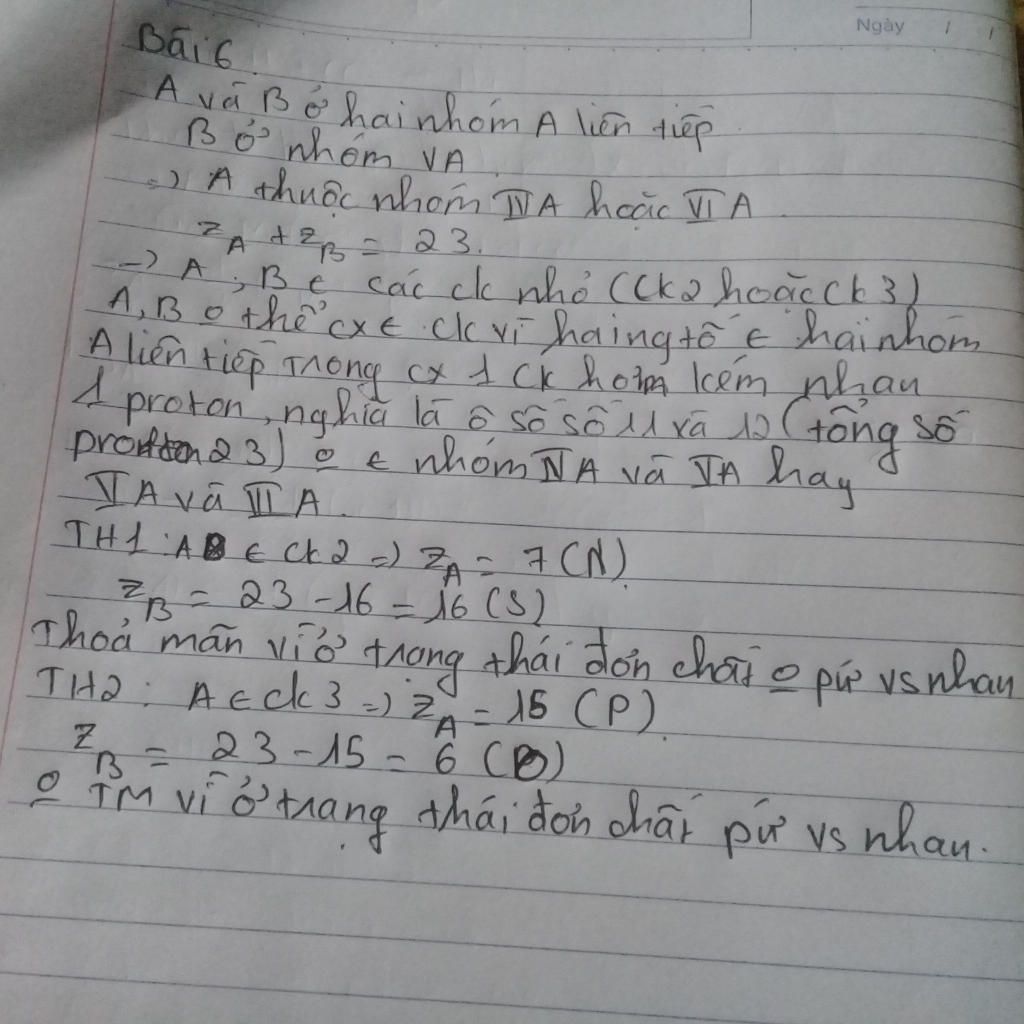 Ngày / /
Bài 6
A và B ở hai nhóm A liên tiếp.
B ở nhóm VA.
=> A thuộc nhóm IVA hoặc VIA.
Z_A + Z_B = 23.
-> A, B ∈ các ck nhỏ (ck2 hoặc ck3)
A, B o thể cx ∈ ck vì hai ngtố ∈ hai nhóm
A liên tiếp trong cx 1 ck hơn kém nhau
1 proton, nghĩa là ô số số 11 và 12 (tổng số
proton 23) o ∈ nhóm IVA và VA hay
VA và VIA.
TH1: A ∈ ck2 => Z_A = 7 (N).
Z_B = 23 - 16 = 16 (S)
Thoả mãn vì ở trạng thái đơn chất o pứ vs nhau
TH2: A ∈ ck3 => Z_A = 15 (P).
Z_B = 23 - 15 = 6 (O)
o TM vì ở trạng thái đơn chất pứ vs nhau.